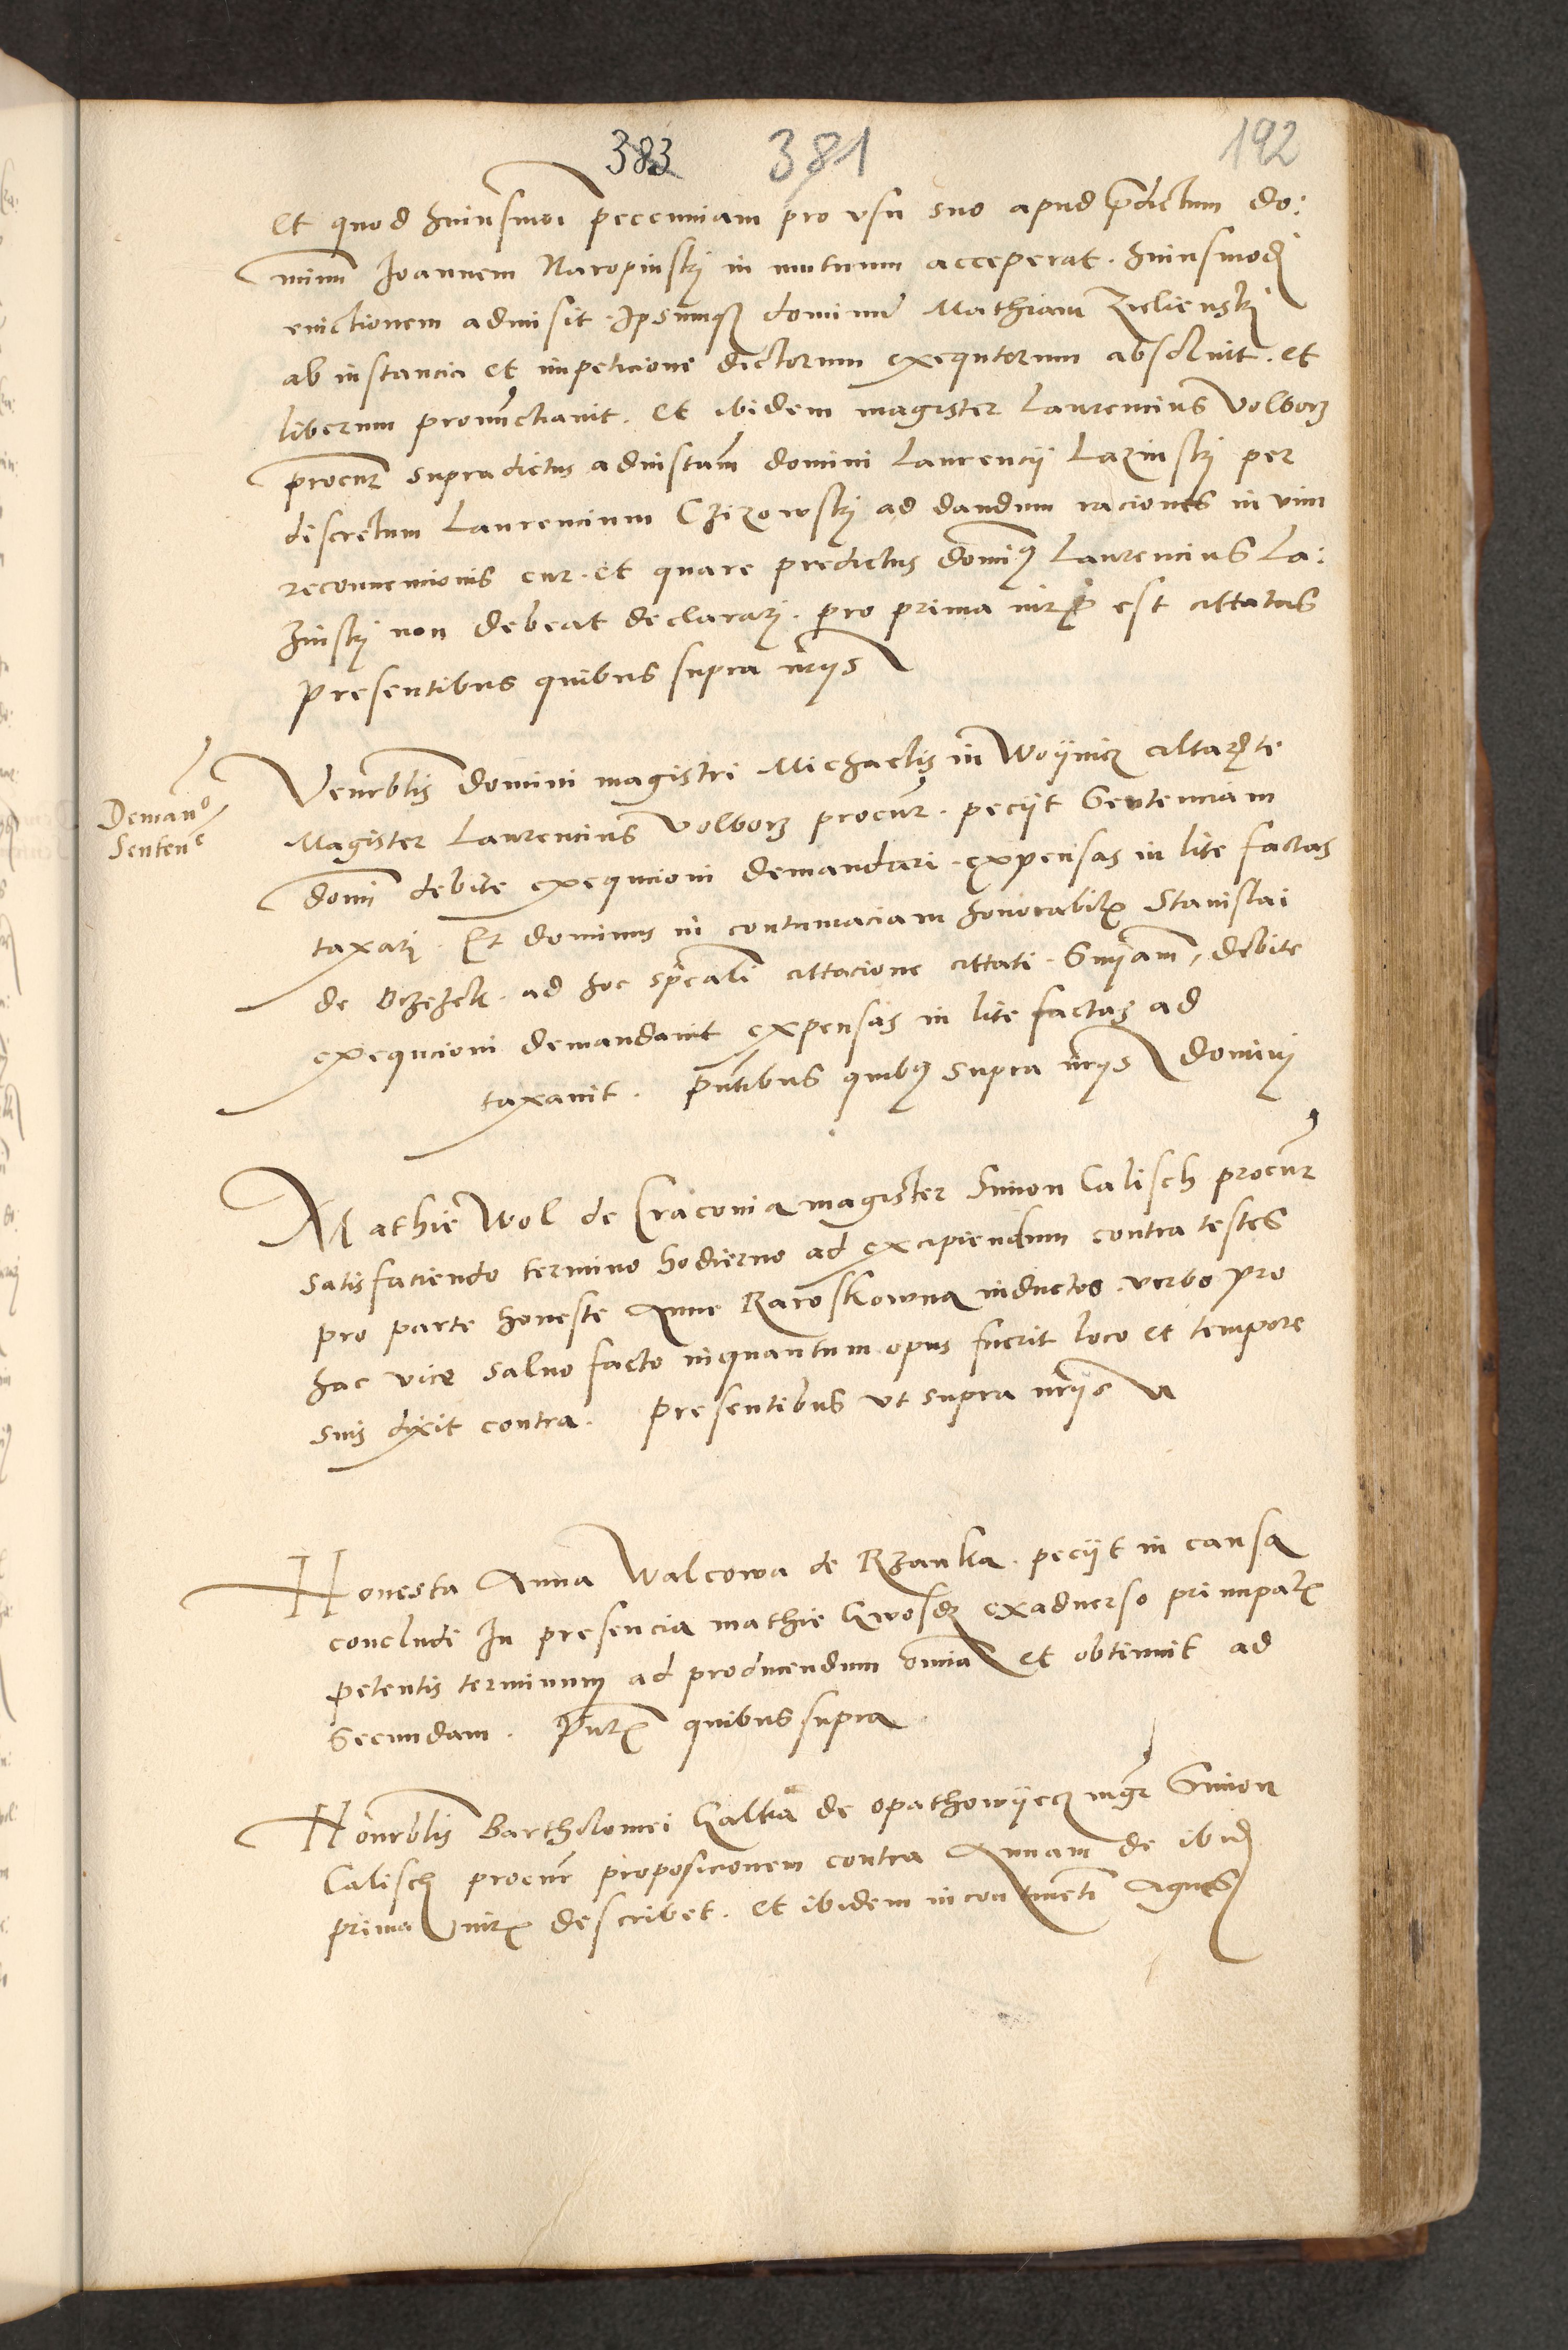 383 381 192
Et quod huiusmoi peccuniam pro usu suo apud predictum do:
minum Joannem Naropinsky in mutuum acceperat. huiusmodi
evictionem admisit. Ipsumque dominum Mathiam Zielienski
ab instancia et impeticione dictorum exequtorum absolvit. et
liberum pronunctiavit. Et ibidem magister Laurencius Volborz
procur supradictus ad instam domini Laurencij Lazinsky per
discretum Laurencium Czizowsky ad dandum raciones in vim
reconvencionis cur. et quare predictus dominus Laurencius La:
zinsky non debeat declarary. pro prima est cittatus
presentibus quibus supra nrijs
Demano
Sentene
Venerblis domini magistri Michaelis in Woijnicz altariste
Magister Laurencius Volborz procur. peciit Sentenciam
domi debite exequcioni demandari. expensas in lite factas
taxary. Et dominus in contumaciam honorabilis Stanislai
de ad hoc speciali cittacione cittati. Snyam, debite
exequcioni demandavit expensas in lite factas ad
taxavit. Pntibus quibus supra nrijs dominij
Mathie Wol de Cracovia magister Simon Calisch procur
satisfaciendo termino hodierno ad excipiendum contra testes
pro parte honeste Anne Raroskowna inductos. verbo pro
hac vice salvo facto inquantum opus fuerit loco et tempore
suis dixit contra. Presentibus ut supra nrijs
Honesta Anna Walcowa de Rzanka. peciit in causa
concludi In presencia mathie Gwosdz exadverso principalis
petentis terminum ad producendum omnia et obtinuit ad
Secundam. Pntibus quibus supra
Honrblis Bartholomei Galka de opathowijecz mgr Simon
Calisch procur proposicionem contra Annam de ibid
prima describet. et ibidem incontinenti Agnes